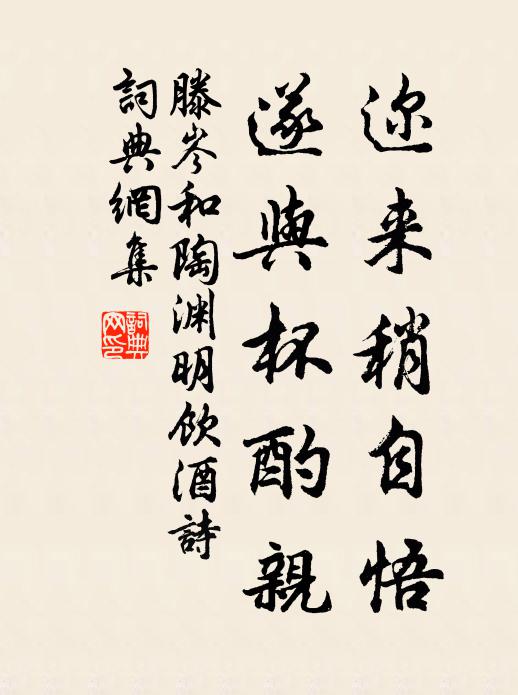 迩来稍自悟
遂與杯酌親
滕岑和陶渊明飲酒詩
詞典網集
詞典
网印